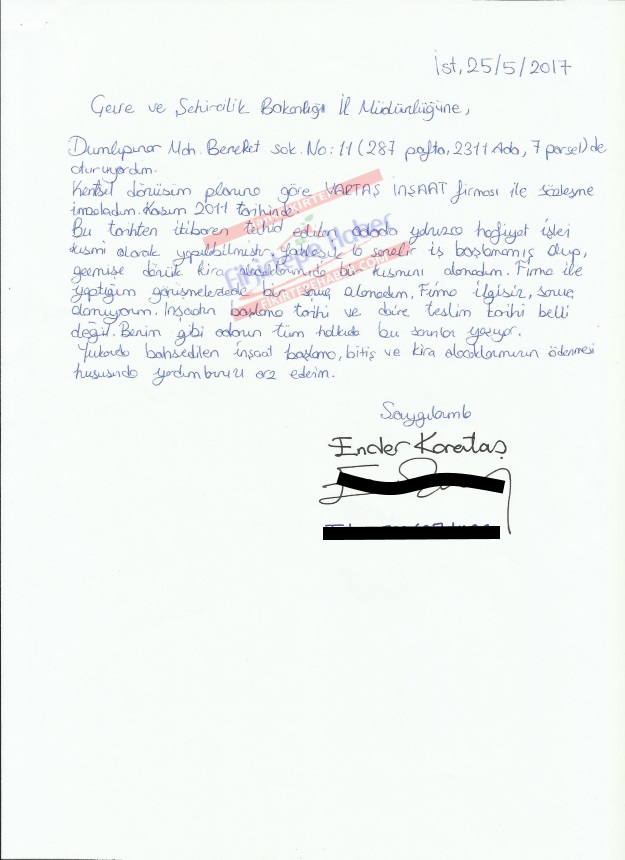 İst, 25/5/2017
Çevre ve Şehircilik Bakanlığı İl Müdürlüğüne,
Dumlupınar Mah. Bereket sok. No: 11 (287 pafta, 2311 Ada, 7 parsel) de
oturuyordum.
Kentsel dönüşüm planına göre VARTAŞ İNŞAAT firması ile sözleşme
imzaladım. Kasım 2011 tarihinde.
Bu tarihten itibaren adada yalnızca hafriyat işleri
kısmi olarak yapılabilmiştir. Yaklaşık 6 senedir iş başlamamış olup,
geçmişe dönük kira alacaklarımın da bir kısmını alamadım. Firma ile
yaptığım görüşmelerde de bir sonuç alamadım. Firma ilgisiz, sonuç
alamıyorum. İnşaatın başlama tarihi ve daire teslim tarihi belli
değil. Benim gibi adanın tüm halkıda bu sorunları yaşıyor.
Yukarıda bahsedilen inşaat başlama, bitiş ve kira alacaklarımın ödenmesi
hususunda yardımınızı arz ederim.
Saygılarımla
Ender Karataş
Fikirtepe Haber
FIKIRTEPEHABER.COM